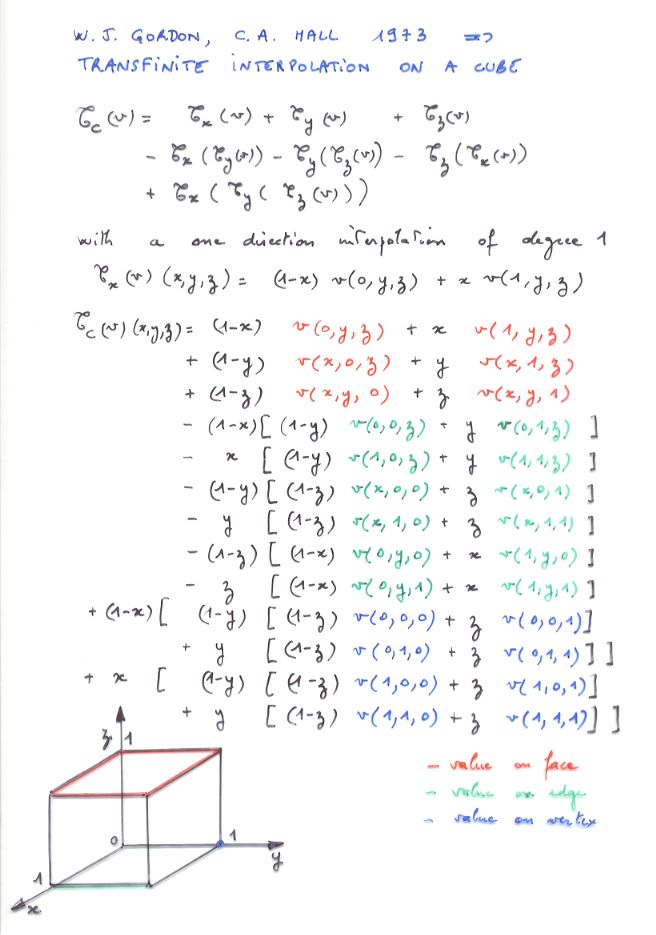 W. J. GORDON, C. A. HALL 1973 =>
TRANSFINITE INTERPOLATION ON A CUBE
𝒯c(v) = 𝒯x(v) + 𝒯y(v) + 𝒯z(v)
- 𝒯x(𝒯y(v)) - 𝒯y(𝒯z(v)) - 𝒯z(𝒯x(v))
+ 𝒯x(𝒯y(𝒯z(v)))
with a one direction interpolation of degree 1
𝒯x(v)(x,y,z) = (1-x) v(0,y,z) + x v(1,y,z)
𝒯c(v)(x,y,z) = (1-x) v(0,y,z) + x v(1,y,z)
+ (1-y) v(x,0,z) + y v(x,1,z)
+ (1-z) v(x,y,0) + z v(x,y,1)
- (1-x)[(1-y) v(0,0,z) + y v(0,1,z)]
- x [(1-y) v(1,0,z) + y v(1,1,z)]
- (1-y)[(1-z) v(x,0,0) + z v(x,0,1)]
- y [(1-z) v(x,1,0) + z v(x,1,1)]
- (1-z)[(1-x) v(0,y,0) + x v(1,y,0)]
- z [(1-x) v(0,y,1) + x v(1,y,1)]
+ (1-x)[ (1-y) [(1-z) v(0,0,0) + z v(0,0,1)]
+ y [(1-z) v(0,1,0) + z v(0,1,1)]]
+ x [ (1-y) [(1-z) v(1,0,0) + z v(1,0,1)]
+ y [(1-z) v(1,1,0) + z v(1,1,1)]]
z 1
- value on face
- value on edge
- value on vertex
0 1
y
1
x